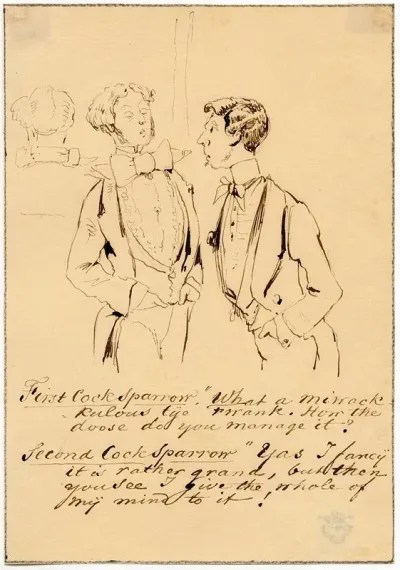 First Cock Sparrow. "What a miwack-
kulous tye Fwank. How the
doose do you manage it?
Second Cock Sparrow "Yas I fancy
it is rather grand, but then
you see I give the whole of
my mind to it!